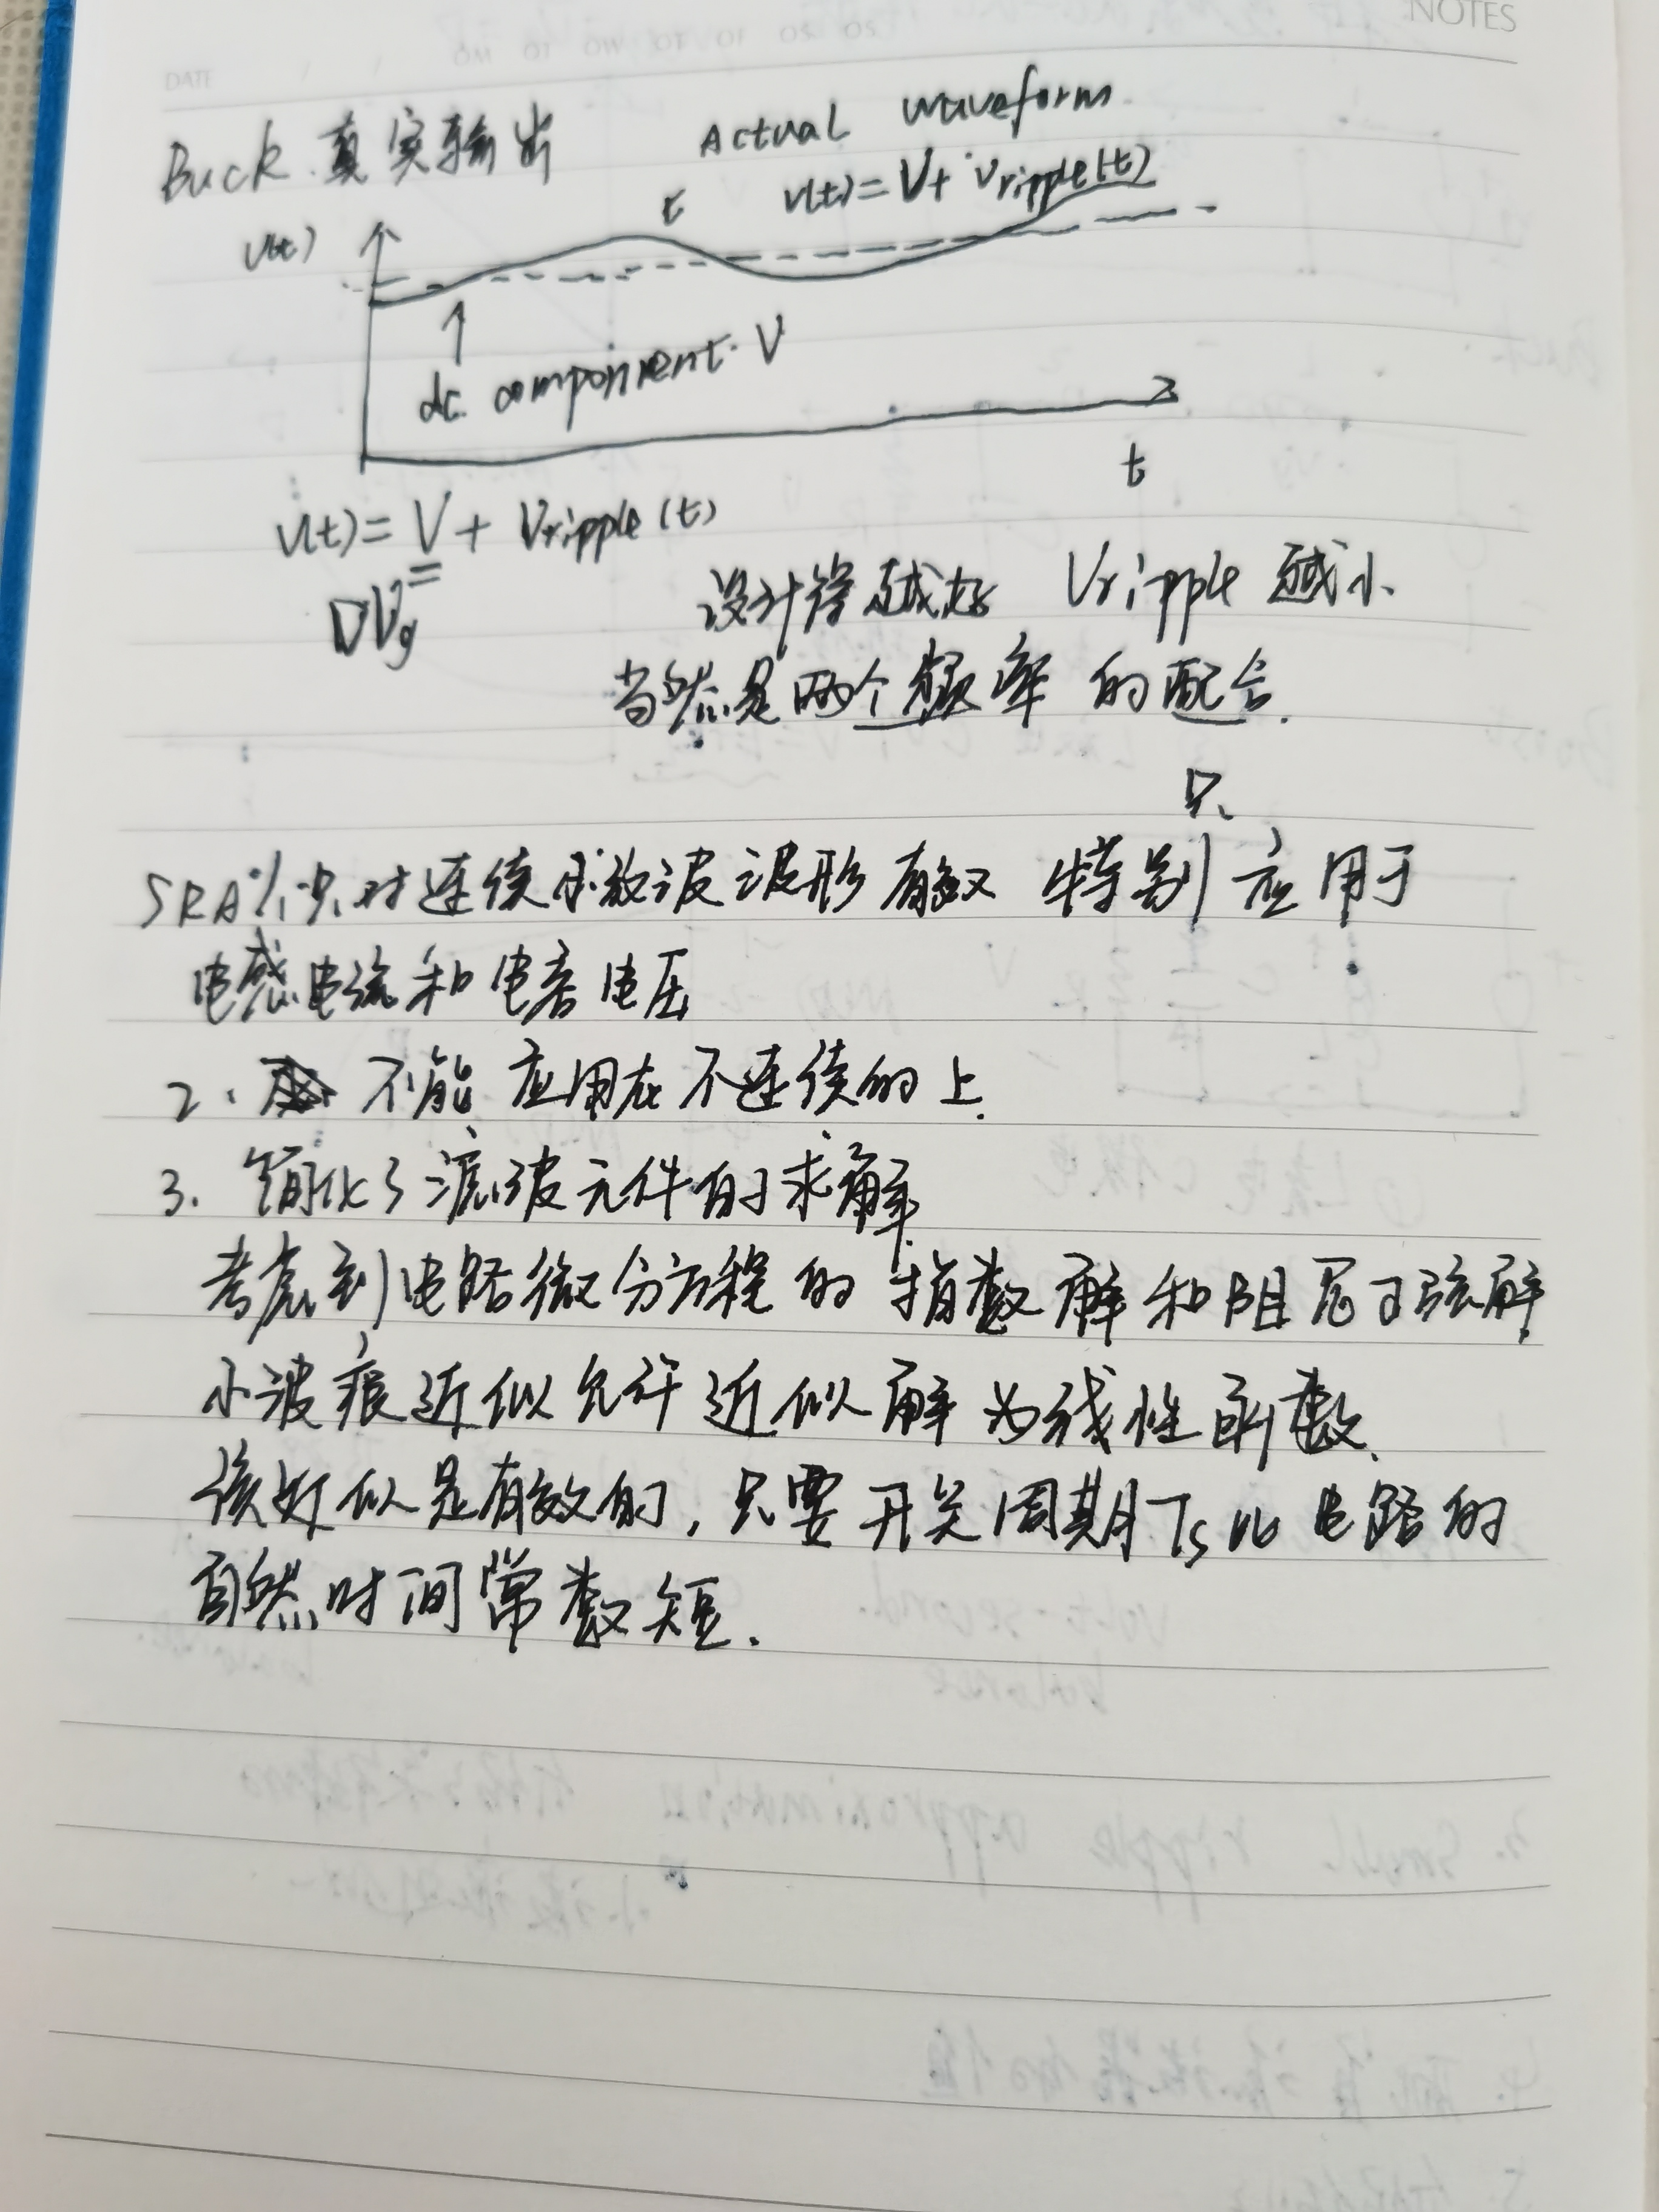 NOTES
DATE
Buck 真实输出
Actual waveform
v(t)
v(t)=V+vripple(t)
dc component V
t
v(t)=V+Vripple(t)
DVg
设计得越好 Vripple 越小
当然是两个频率的配合.
SRA 只对连续小纹波波形有效 特别应用于
电感电流和电容电压
2. 不能应用在不连续的上.
3. 简化了滤波元件的求解
考虑到电路微分方程的指数解和阻尼正弦解
小波痕近似允许近似解为线性函数.
该好似是有效的,只要开关周期Ts比电路的
自然时间常数短.